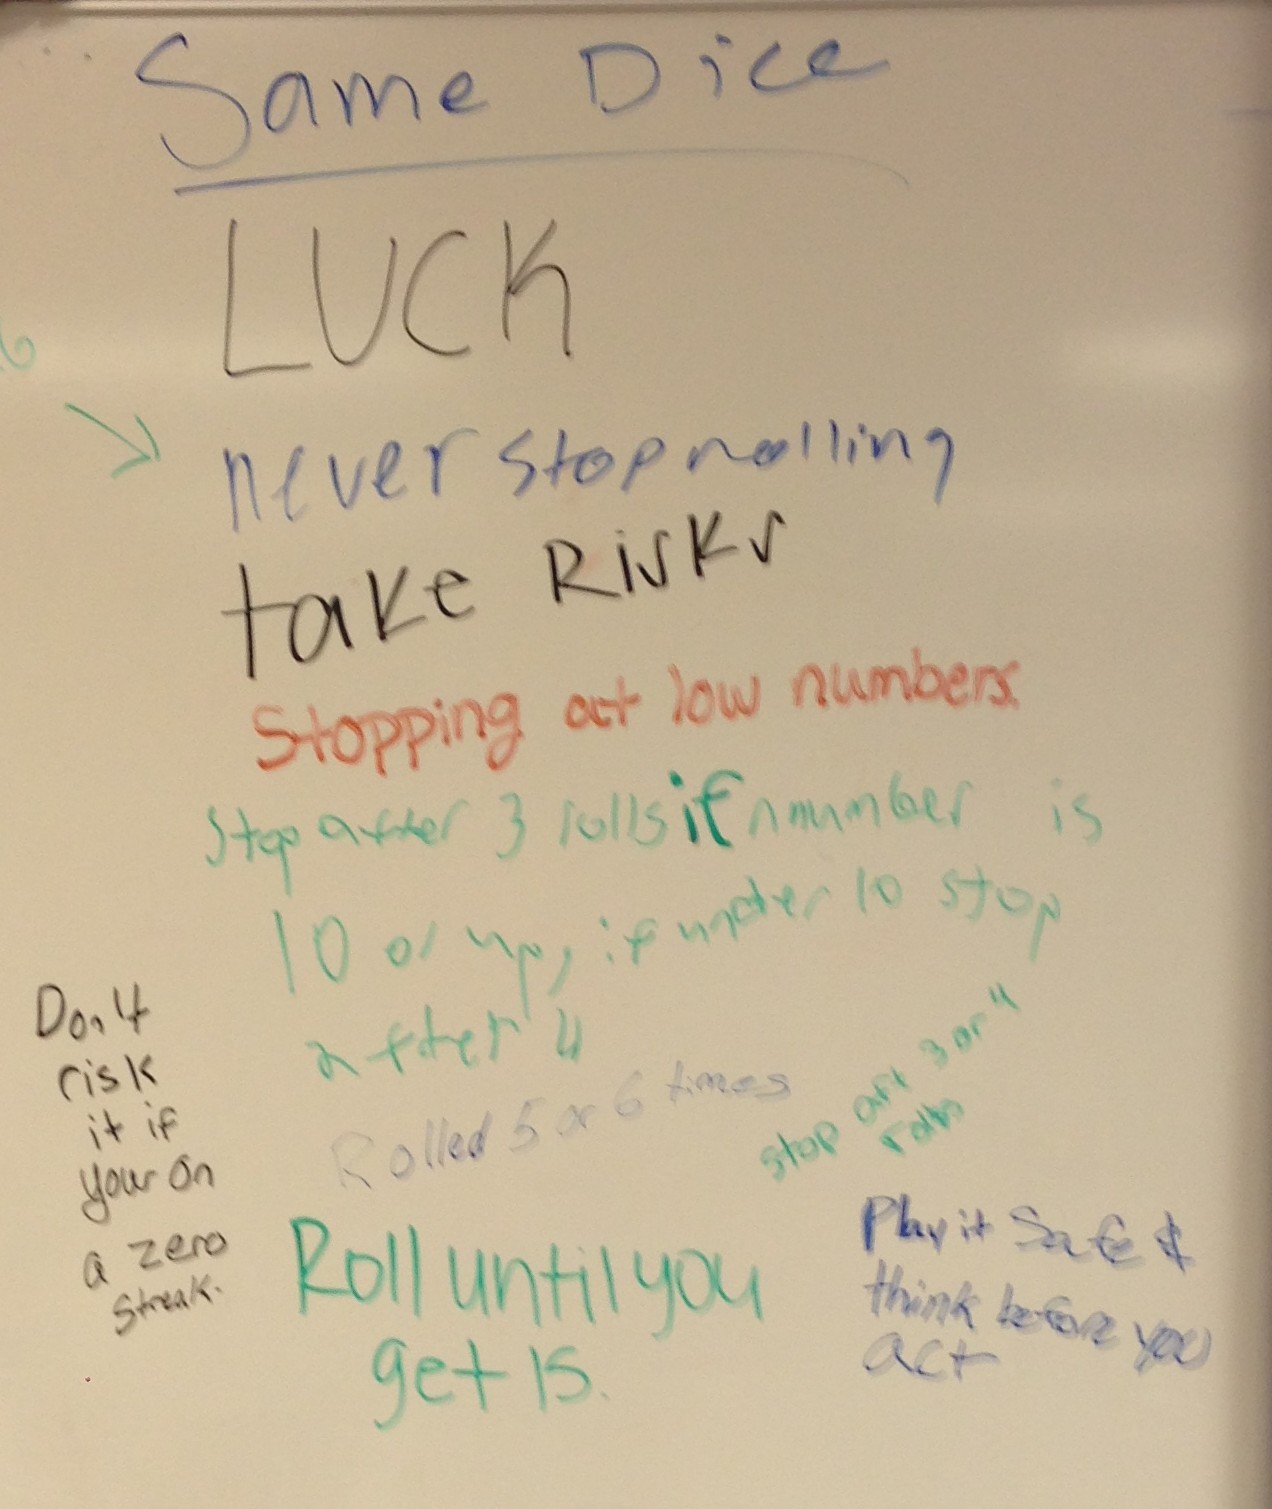 Same Dice
LUCK
6
never stop rolling
take Risks
Stopping at low numbers.
Stop after 3 rolls if nmumber is
10 or up, if under 10 stop
after 4
Don't
risk
it if
your on
a zero
streak.
Rolled 5 or 6 times
stop at 3 or 4
rolls
Roll until you
get 15.
Play it Safe &
think before you
act